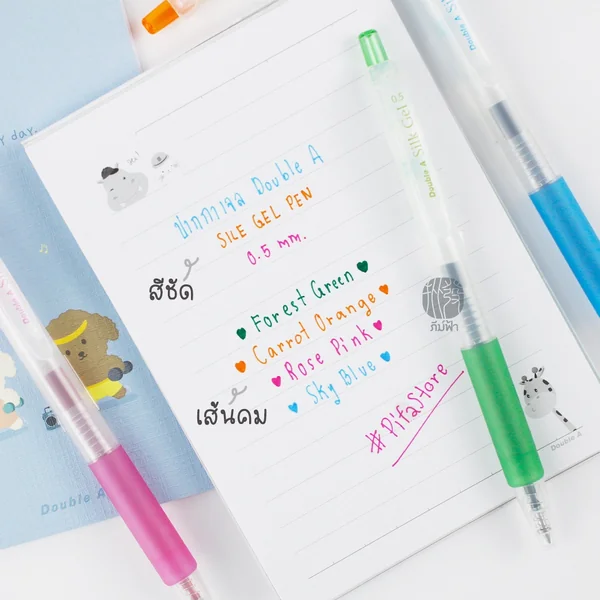 y day.
ปากกาเจล Double A
SILE GEL PEN
0.5 mm.
สีชัด
Forest Green
Carrot Orange
Rose Pink
Sky Blue
เส้นคม
#PifaStore
Double A Silk Gel 0.5
ภีม์ฟ้า
Double A Silk
Double A
Double A
Double A